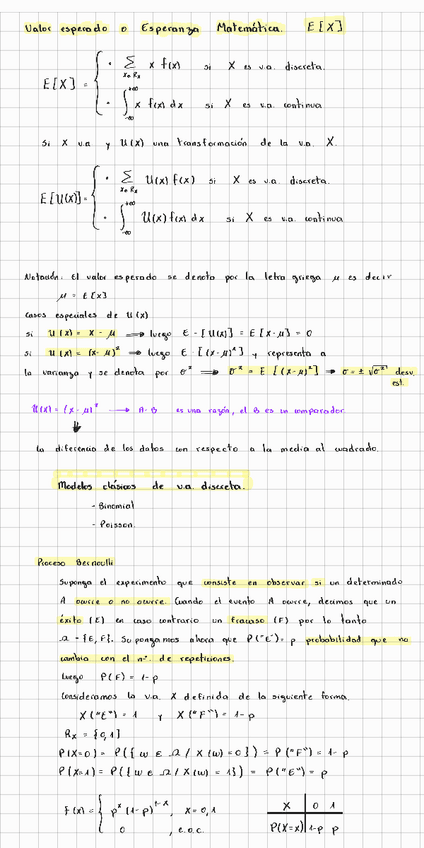 Valor esperado o Esperanza Matemática. E[X]
E[X] = { · ∑ x∈Rx x f(x) si X es v.a. discreta.
· ∫ -∞ +∞ x f(x) dx si X es v.a. continua
Si X v.a y U(x) una transformación de la v.a. X.
E[U(x)] = { · ∑ x∈Rx U(x) f(x) si X es v.a. discreta.
· ∫ -∞ +∞ U(x) f(x) dx si X es v.a. continua
Notación: El valor esperado se denota por la letra griega μ es decir
μ = E[x]
Casos especiales de U(x)
si U(x) = x - μ ⟹ luego E = [U(x)] = E[x-μ] = 0
si U(x) = (x-μ)² ⟹ luego E = [(x-μ)²] y representa a
la varianza y se denota por σ² ⟹ σ² = E [(x-μ)²] ⟹ σ = ± √σ² desv.
est.
U(x) = (x-μ)² ⟶ A-B es una razón, el B es un comparador
⇓
la diferencia de los datos con respecto a la media al cuadrado.
Modelos clásicos de v.a. discreta.
- Binomial
- Poisson.
Proceso Bernoulli
Suponga el experimento que consiste en observar si un determinado
A ocurre o no ocurre. Cuando el evento A ocurre, decimos que un
éxito (E) en caso contrario un fracaso (F) por lo tanto
Ω = {E, F}. Supongamos ahora que P("E") = p probabilidad que no
cambia con el nº. de repeticiones.
luego P(F) = 1-p
Consideramos la v.a. X definida de la siguiente forma.
X("E") = 1 y X("F") = 1-p
Rx = {0,1}
P(X=0) = P({ω ∈ Ω / X(ω) = 0}) = P("F") = 1-p
P(X=1) = P({ω ∈ Ω / X(ω) = 1}) = P("E") = p
f(x) = { p^x (1-p)^1-x , x = 0,1
0 , e.o.c.
X 0 1
P(X=x) 1-p p